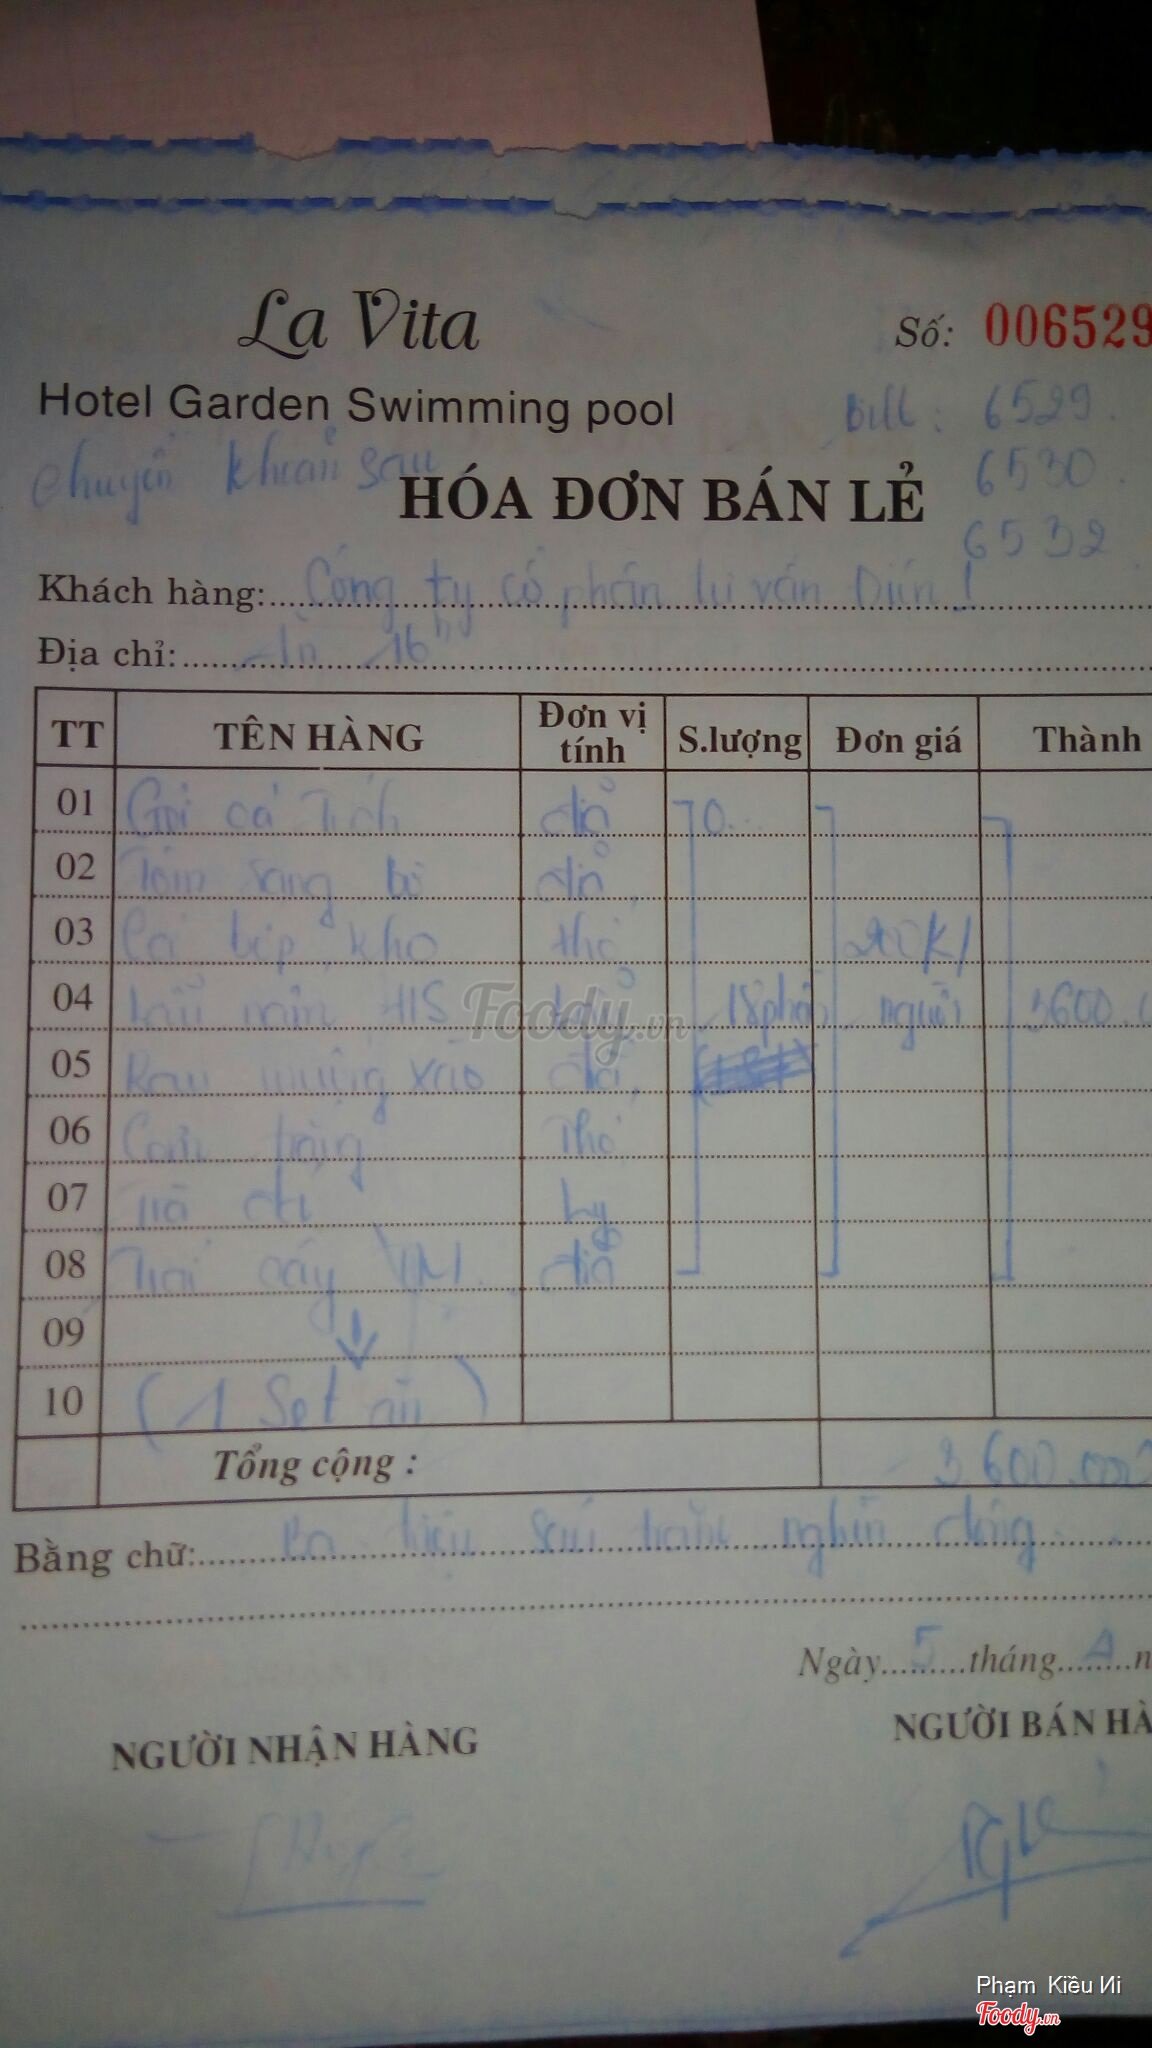 La Vita
Số: 006529
Hotel Garden Swimming pool
Bill: 6529.
chuyển khoản sau
6530.
HÓA ĐƠN BÁN LẺ
6532
Khách hàng: Công ty cổ phần tư vấn Điện 1
Địa chỉ: ăn 16h
TT TÊN HÀNG Đơn vị tính S.lượng Đơn giá Thành
01 Gỏi cá Trích dĩa
02 dĩa
03 Cá kho thố 200K/
04 Lẩu 18 phần người 3600.
05 Rau muống xào dĩa
06 Cơm trắng Thố
07 Trà đá ly
08 Trái cây TM dĩa
09
10 (1 Set ăn)
Tổng cộng: 3.600.000
Bằng chữ: Ba triệu sáu trăm nghìn đồng
Ngày 5 tháng 4 n
NGƯỜI NHẬN HÀNG
NGƯỜI BÁN HÀ
Foody.vn
Phạm Kiều Иi
Foody.vn